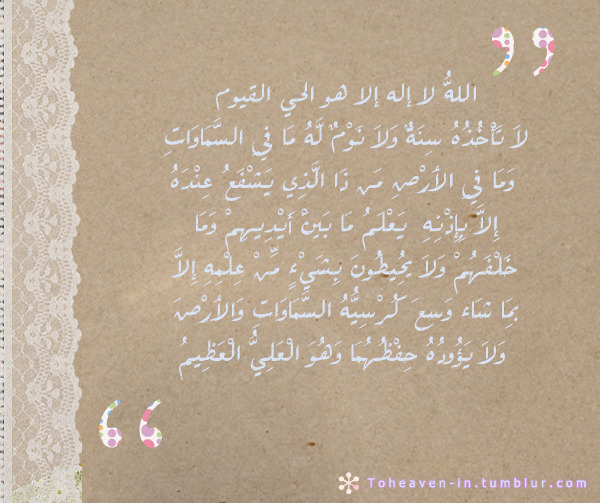 اللهُّ لا إله إلا هو الحي القيوم
لاَ تَأْخُذُهُ سِنَةٌ وَلاَ نَوْمٌ لَّهُ مَا فِي السَّمَاوَاتِ
وَمَا فِي الأَرْضِ مَن ذَا الَّذِي يَشْفَعُ عِنْدَهُ
إِلاَّ بِإِذْنِهِ يَعْلَمُ مَا بَيْنَ أَيْدِيهِمْ وَمَا
خَلْفَهُمْ وَلاَ يُحِيطُونَ بِشَيْءٍ مِّنْ عِلْمِهِ إِلاَّ
بِمَا شاء وَسِعَ كُرْسِيُّهُ السَّمَاوَاتِ وَالأَرْضَ
وَلاَ يَؤُودُهُ حِفْظُهُمَا وَهُوَ الْعَلِيُّ الْعَظِيمُ
Toheaven-in.tumblur.com